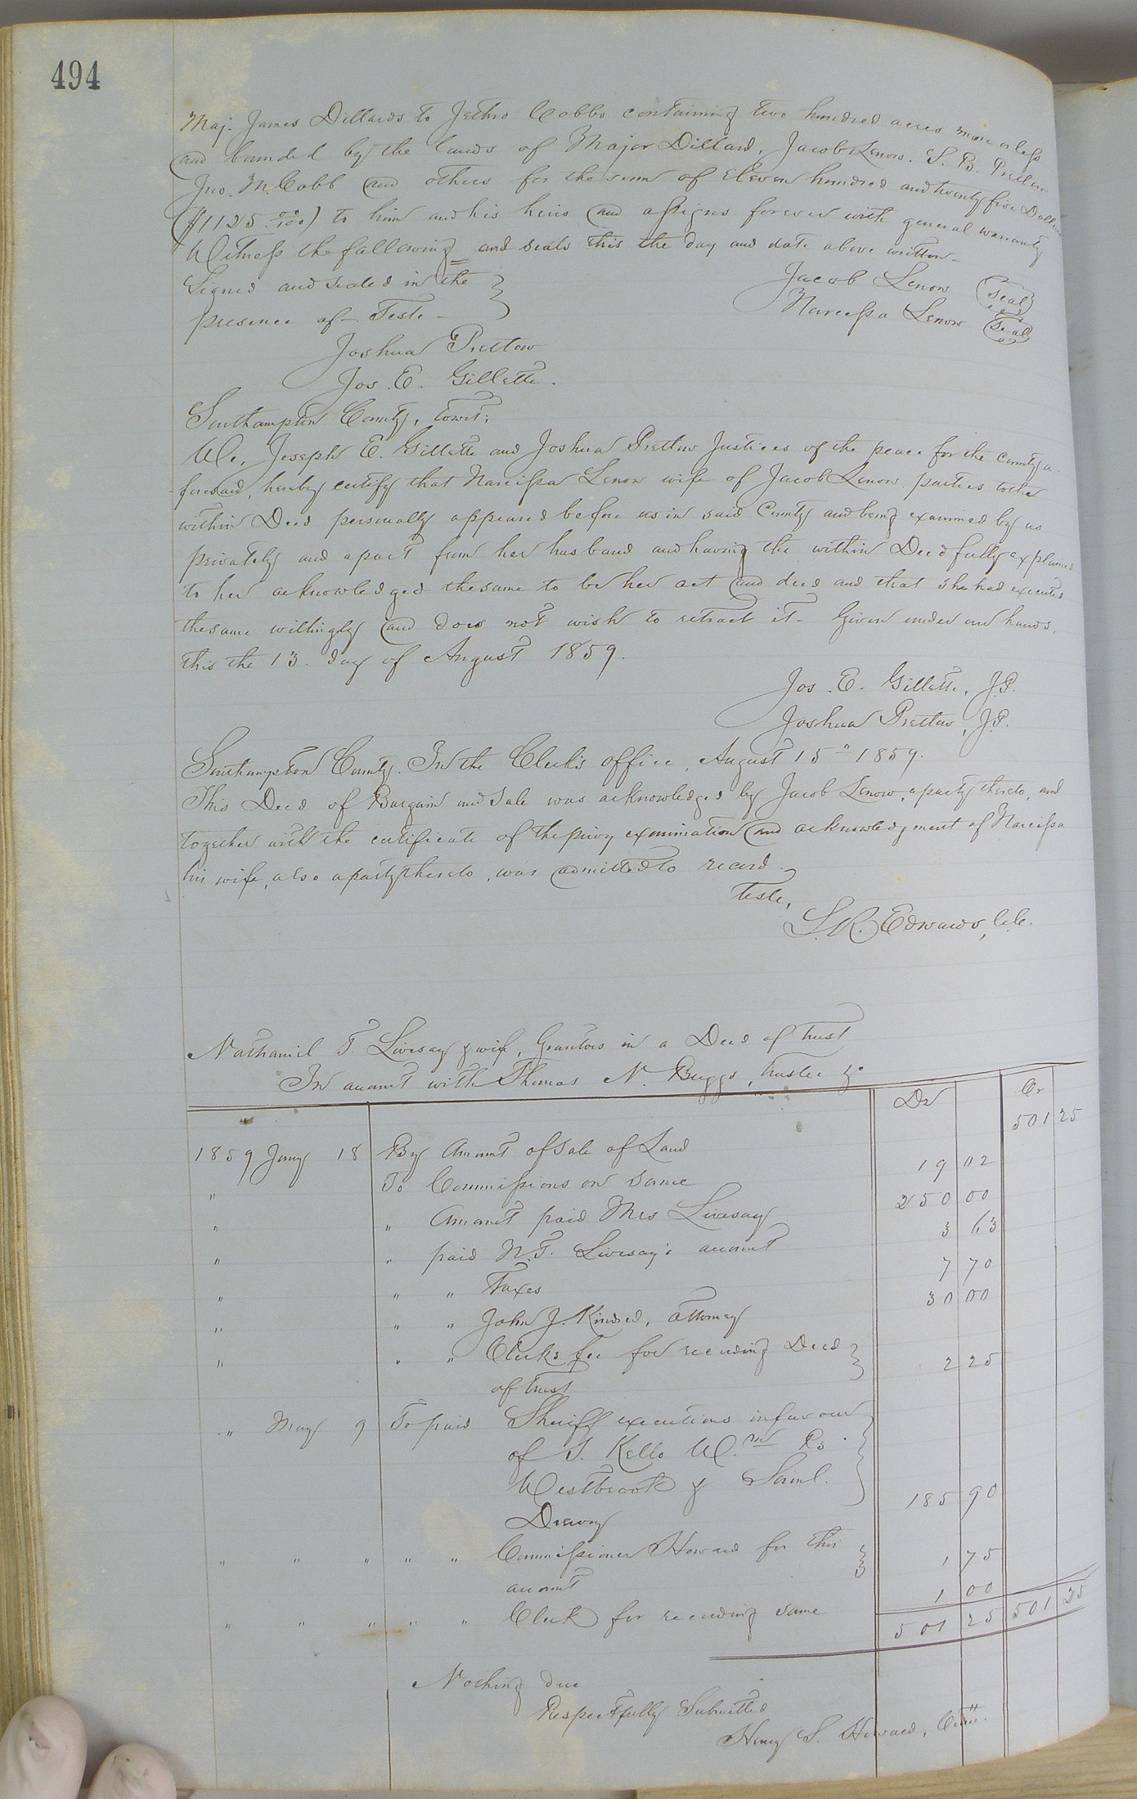 494
Maj. James Dillards to Jethro Cobbs containing two hundred acres more or less
and bounded by the lands of Major Dillard, Jacob Lenow. S. B. Pretlow
Jno. M. Cobb and others for the sum of Eleven hundred and twenty five Dollars
($1125 00/100) to him and his heirs and assigns forever with general warranty
Witness the following and seals this the day and date above written—
Signed and sealed in the } Jacob Lenow (seal)
presence of— Teste— Narcissa Lenow (seal)
Joshua Pretlow
Jos. E. Gillette.
Southampton County, towit;
We, Joseph E. Gillette and Joshua Pretlow Justices of the peace for the County a-
foresaid, hereby certify that Narcissa Lenow wife of Jacob Lenow parties to the
within Deed personally appeared before us in said County and being examined by us
privately and apart from her husband and having the within Deed fully explained
to her acknowledged the same to be her act and deed and that she had executed
the same willingly and does not wish to retract it— Given under our hands,
this the 13. day of August 1859.
Jos. E. Gillette, J.P.
Joshua Pretlow, J.P.
Southampton County. In the Clerk's office, August 15" 1859.
This Deed of Bargain and Sale was acknowledged by Jacob Lenow, a party thereto, and
together with the certificate of the privy examination and acknowledgment of Narcissa
his wife, also a party thereto, was admitted to record.
Teste,
L. R. Edwards, C.C.
Nathaniel T. Livesay & wife, Grantors in a Deed of Trust
In account with Thomas N. Briggs, trustee &c
Dr Cr
1859 Jany 18 By Amount of sale of Land 501 25
" To Commissions on same 19 02
" " Amount paid Mrs Livesay 250 00
" " paid N. T. Livesay's account 3 63
" " " Taxes 7 70
" " " John J. Kindred, attorney 30 00
" " " Clerks fee for recording Deed }
of trust 2 25
" May 9 To paid Sheriff executions in favour
of S. Kello Wm. Ro.
Westbrook & Saml.
Drewry 185 90
" " " " " Commissioner Howard for this
account 1 75
" " " " " Clerk for recording same 1 00
501 25 501 25
Nothing due
Respectfully Submitted
Henry S. Howard, Comr.